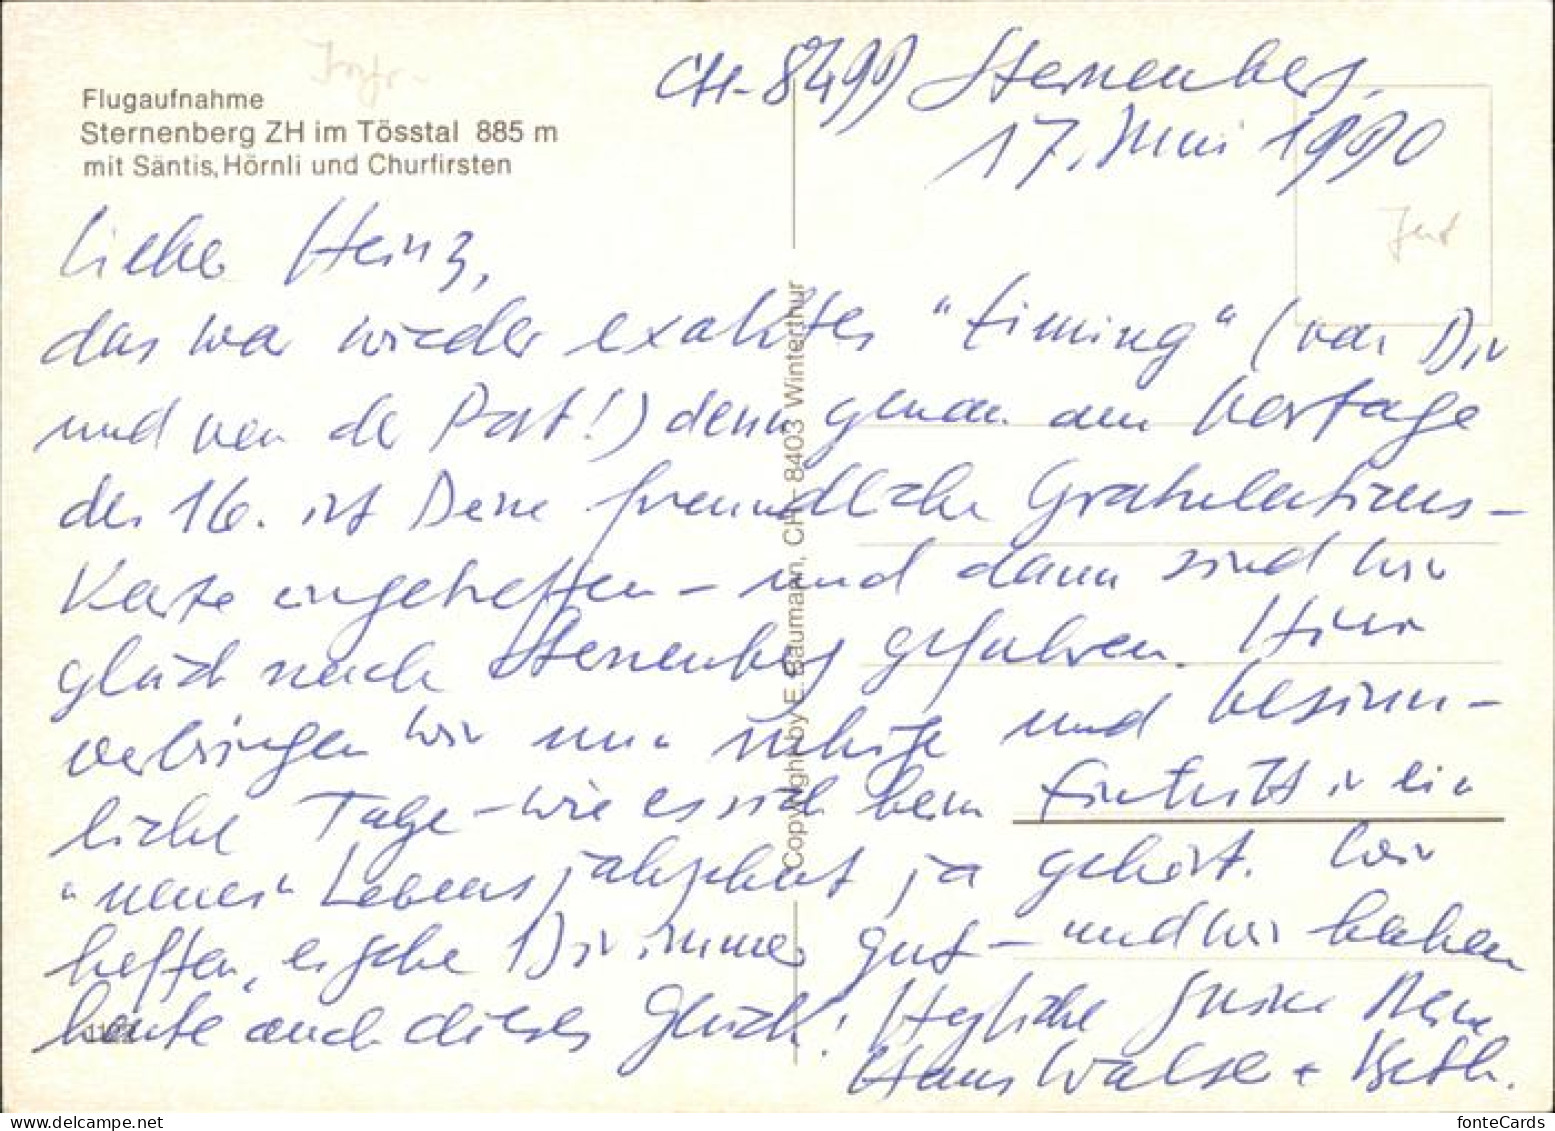 Flugaufnahme
Sternenberg ZH im Tösstal 885 m
mit Säntis, Hörnli und Churfirsten
CH-8499 Sternenberg,
17. Juni 1990
Lieber Heinz,
das war wieder exaktes "timing" (von Dir
und von der Post!) denn genau am Vortage
des 16. ist Deine freundliche Gratulations-
Karte eingetroffen - und dann sind wir
glück nach Sternenberg gefahren. Hier
verbringen wir nun ruhige und besinn-
liche Tage - wie es sich beim Eintritt in ein
"neues" Lebensjahrzehnt ja gehört. Wir
hoffen, es gehe Dir immer gut - und wir haben
heute auch dieses Glück! Herzliche Grüsse Deine
Hans Walser + Beth.
Copyright by E. Baumann, CH-8403 Winterthur
fonteCards